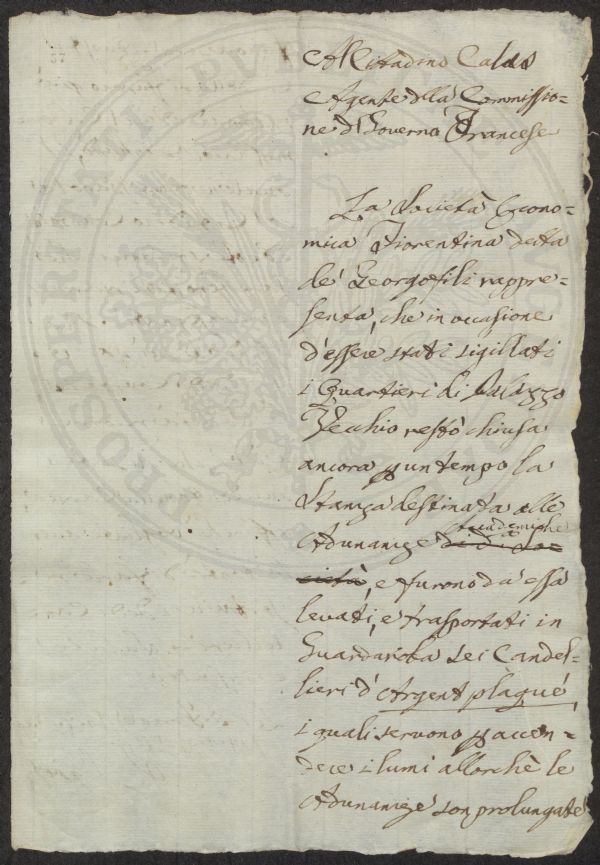 Al Cittadino Calas
Agente della Commissio=
ne di Governo Francese
La Società Econo=
mica Fiorentina detta
de' Georgofili rappre=
senta, che in occasione
d'essere stati sigillati
i Quartieri di Palazzo
Vecchio restò chiusa
ancora p un tempo la
Stanza destinata alle
accademiche
Adunanze di d.a So=
cietà, e furono da essa
levati, e trasportati in
Guardaroba sei Candel=
lieri d'Argent plaqué,
i quali servono p accen=
dere i lumi allorchè le
Adunanze son prolungate